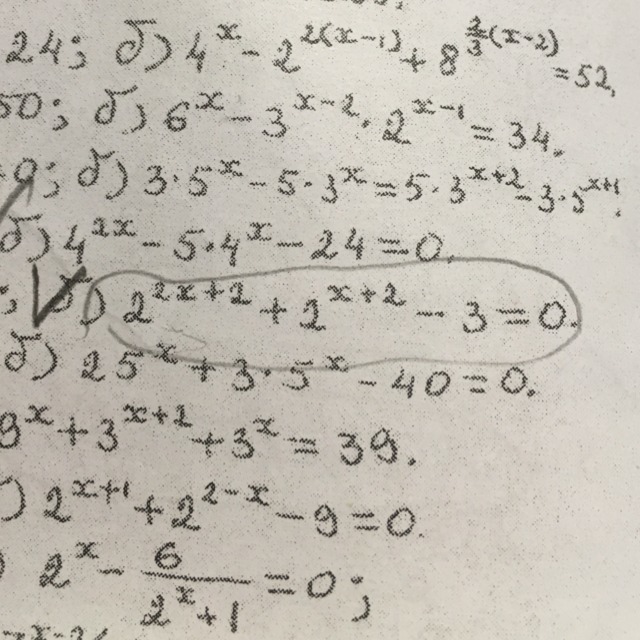 24; б) 4^x - 2^{2(x-1)} + 8^{\frac{2}{3}(x-2)} = 52,
50; б) 6^x - 3^{x-2} \cdot 2^{x-1} = 34.
9; б) 3·5^x - 5·3^x = 5·3^{x+2} - 3·5^{x+1};
б) 4^{2x} - 5·4^x - 24 = 0.
; б) 2^{2x+2} + 2^{x+2} - 3 = 0.
б) 25^x + 3·5^x - 40 = 0.
9^x + 3^{x+2} + 3^x = 39.
) 2^{x+1} + 2^{2-x} - 9 = 0.
) 2^x - \frac{6}{2^x + 1} = 0;